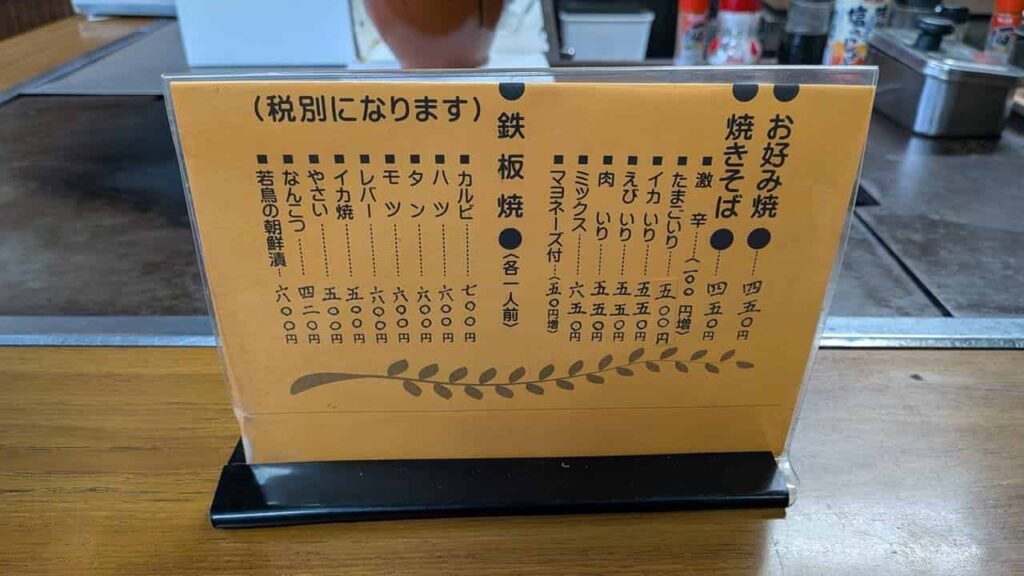 お好み焼●四五〇円
焼きそば●四五〇円
■激辛(一〇〇円増)
■たまごいり五〇〇円
■イカいり五五〇円
■えびいり五五〇円
■肉いり五五〇円
■ミックス六五〇円
■マヨネーズ付(五〇円増)
●鉄板焼●〈各一人前〉
(税別になります)
■カルビ七〇〇円
■ハツ六〇〇円
■タン六〇〇円
■モツ六〇〇円
■レバー六〇〇円
■イカ焼五〇〇円
■やさい五〇〇円
■なんこつ四二〇円
■若鳥の朝鮮漬六〇〇円